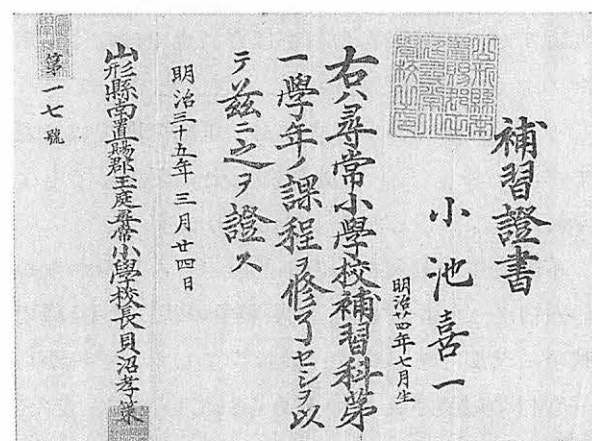 補習證書
小池喜一
明治廿四年七月生
右ハ尋常小學校補習科第
一學年ノ課程ヲ修了セシヲ以
テ玆ニ之ヲ證ス
明治三十五年三月廿四日
山形縣南置賜郡玉庭尋常小學校長貝沼孝策
第一七號